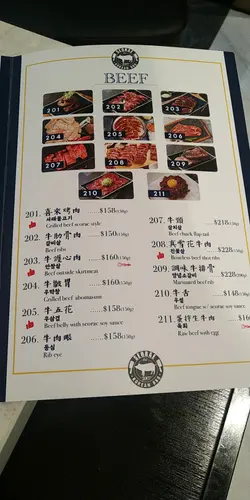 BEEF
201
202
203
204
205
206
207
208
209
210
211
201. 喜來烤肉 ......$158(150g)
서래불고기
Grilled beef seorae style
202. 牛肋骨肉 ....$150(150g)
갈비살
Beef ribs
203. 牛護心肉 ....$160(150g)
안창살
Beef outside skirtmeat
204. 牛皺胃 ......$160(150g)
우막창
Grilled beef abomasum
205. 牛五花 ......$158(150g)
우삼겹
Beef belly with seorae soy sauce
206. 牛肉眼 ......$158(150g)
등심
Rib eye
207. 牛頸 ......$218(150g)
살치살
Beef chuck flap tail
208. 無骨雪花牛肉 ....$228
진꽃살
Boneless beef short ribs
209. 調味牛排骨 ....$228
양념소갈비
Marinated beef rib
210. 牛舌 ......$148(150g)
우설
Beef tongue w/ seorae soy sauce
211. 薑拌生牛肉 ....
육회
Raw beef with egg